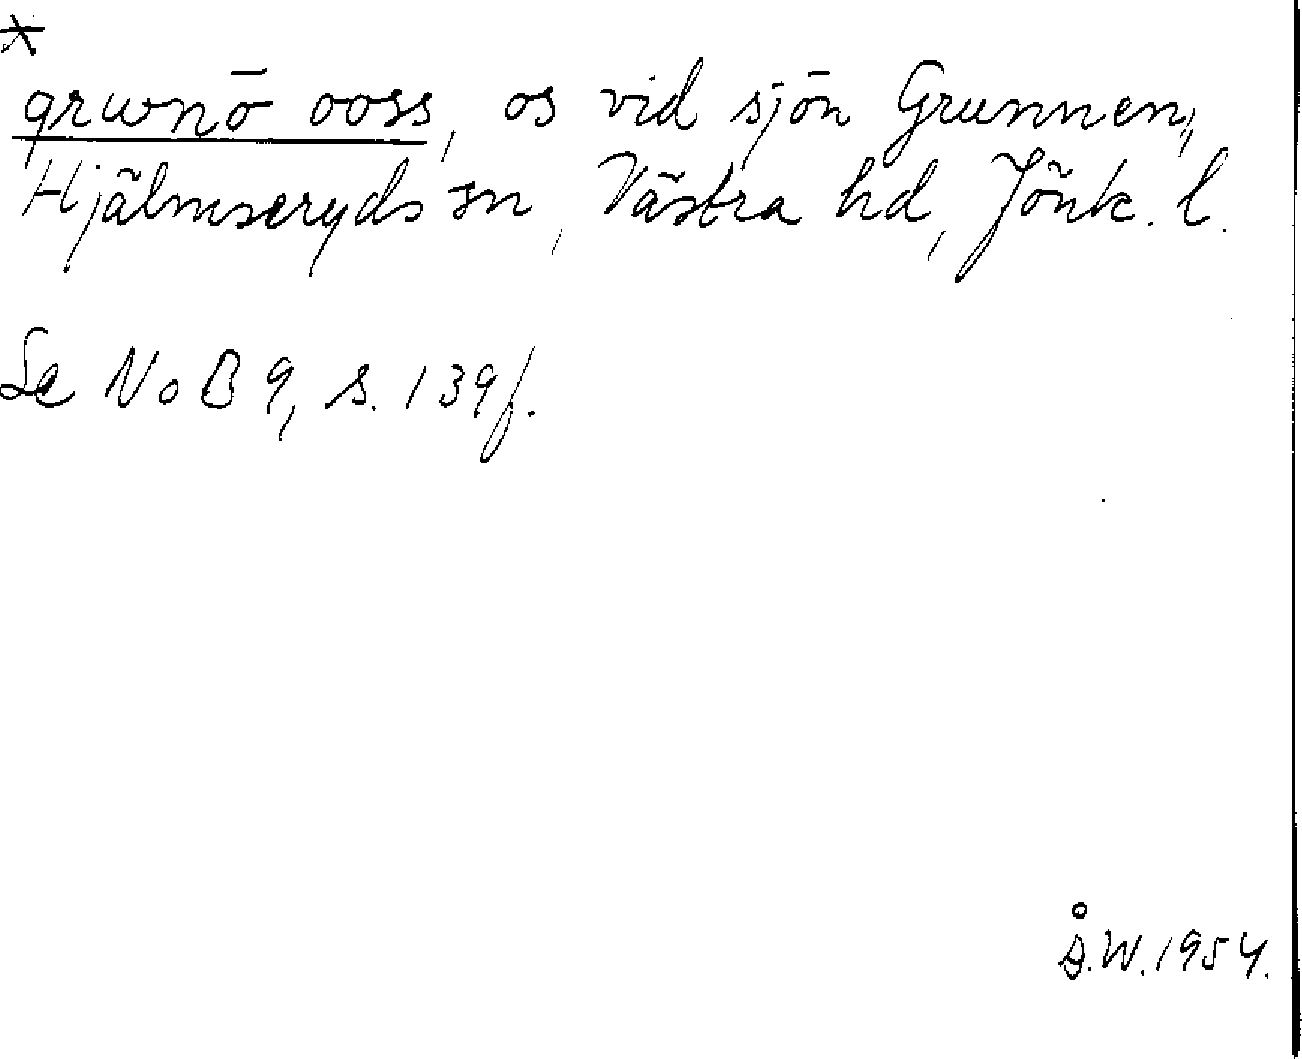 *
grwnō ooss, os vid sjön Grunnen,
Hjälmseryds sn, Västra hd, Jönk. l.
Se NoB 9, s. 139 f.
Å.W. 1954.